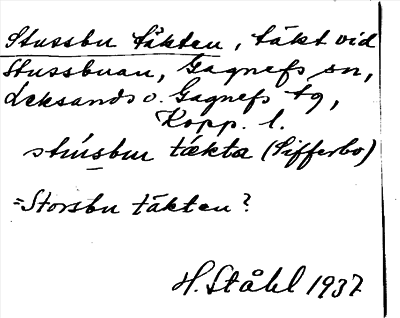 Stussbu täkten, täkt vid
Stussbuan, Gagnefs sn,
Leksands o. Gagnefs tg,
Kopp. l.
stúsbur tækta (Sifferbo)
=Storsbu täkten?
H. Ståhl 1937